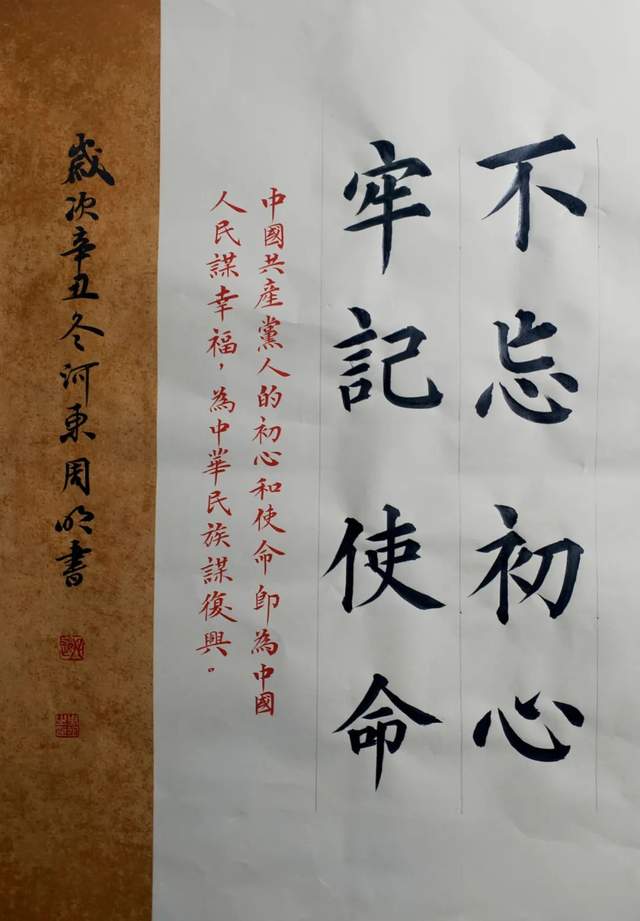 不忘初心
牢記使命
中國共產黨人的初心和使命即為中國
人民謀幸福，為中華民族謀復興。
歲次辛丑冬河東周明書